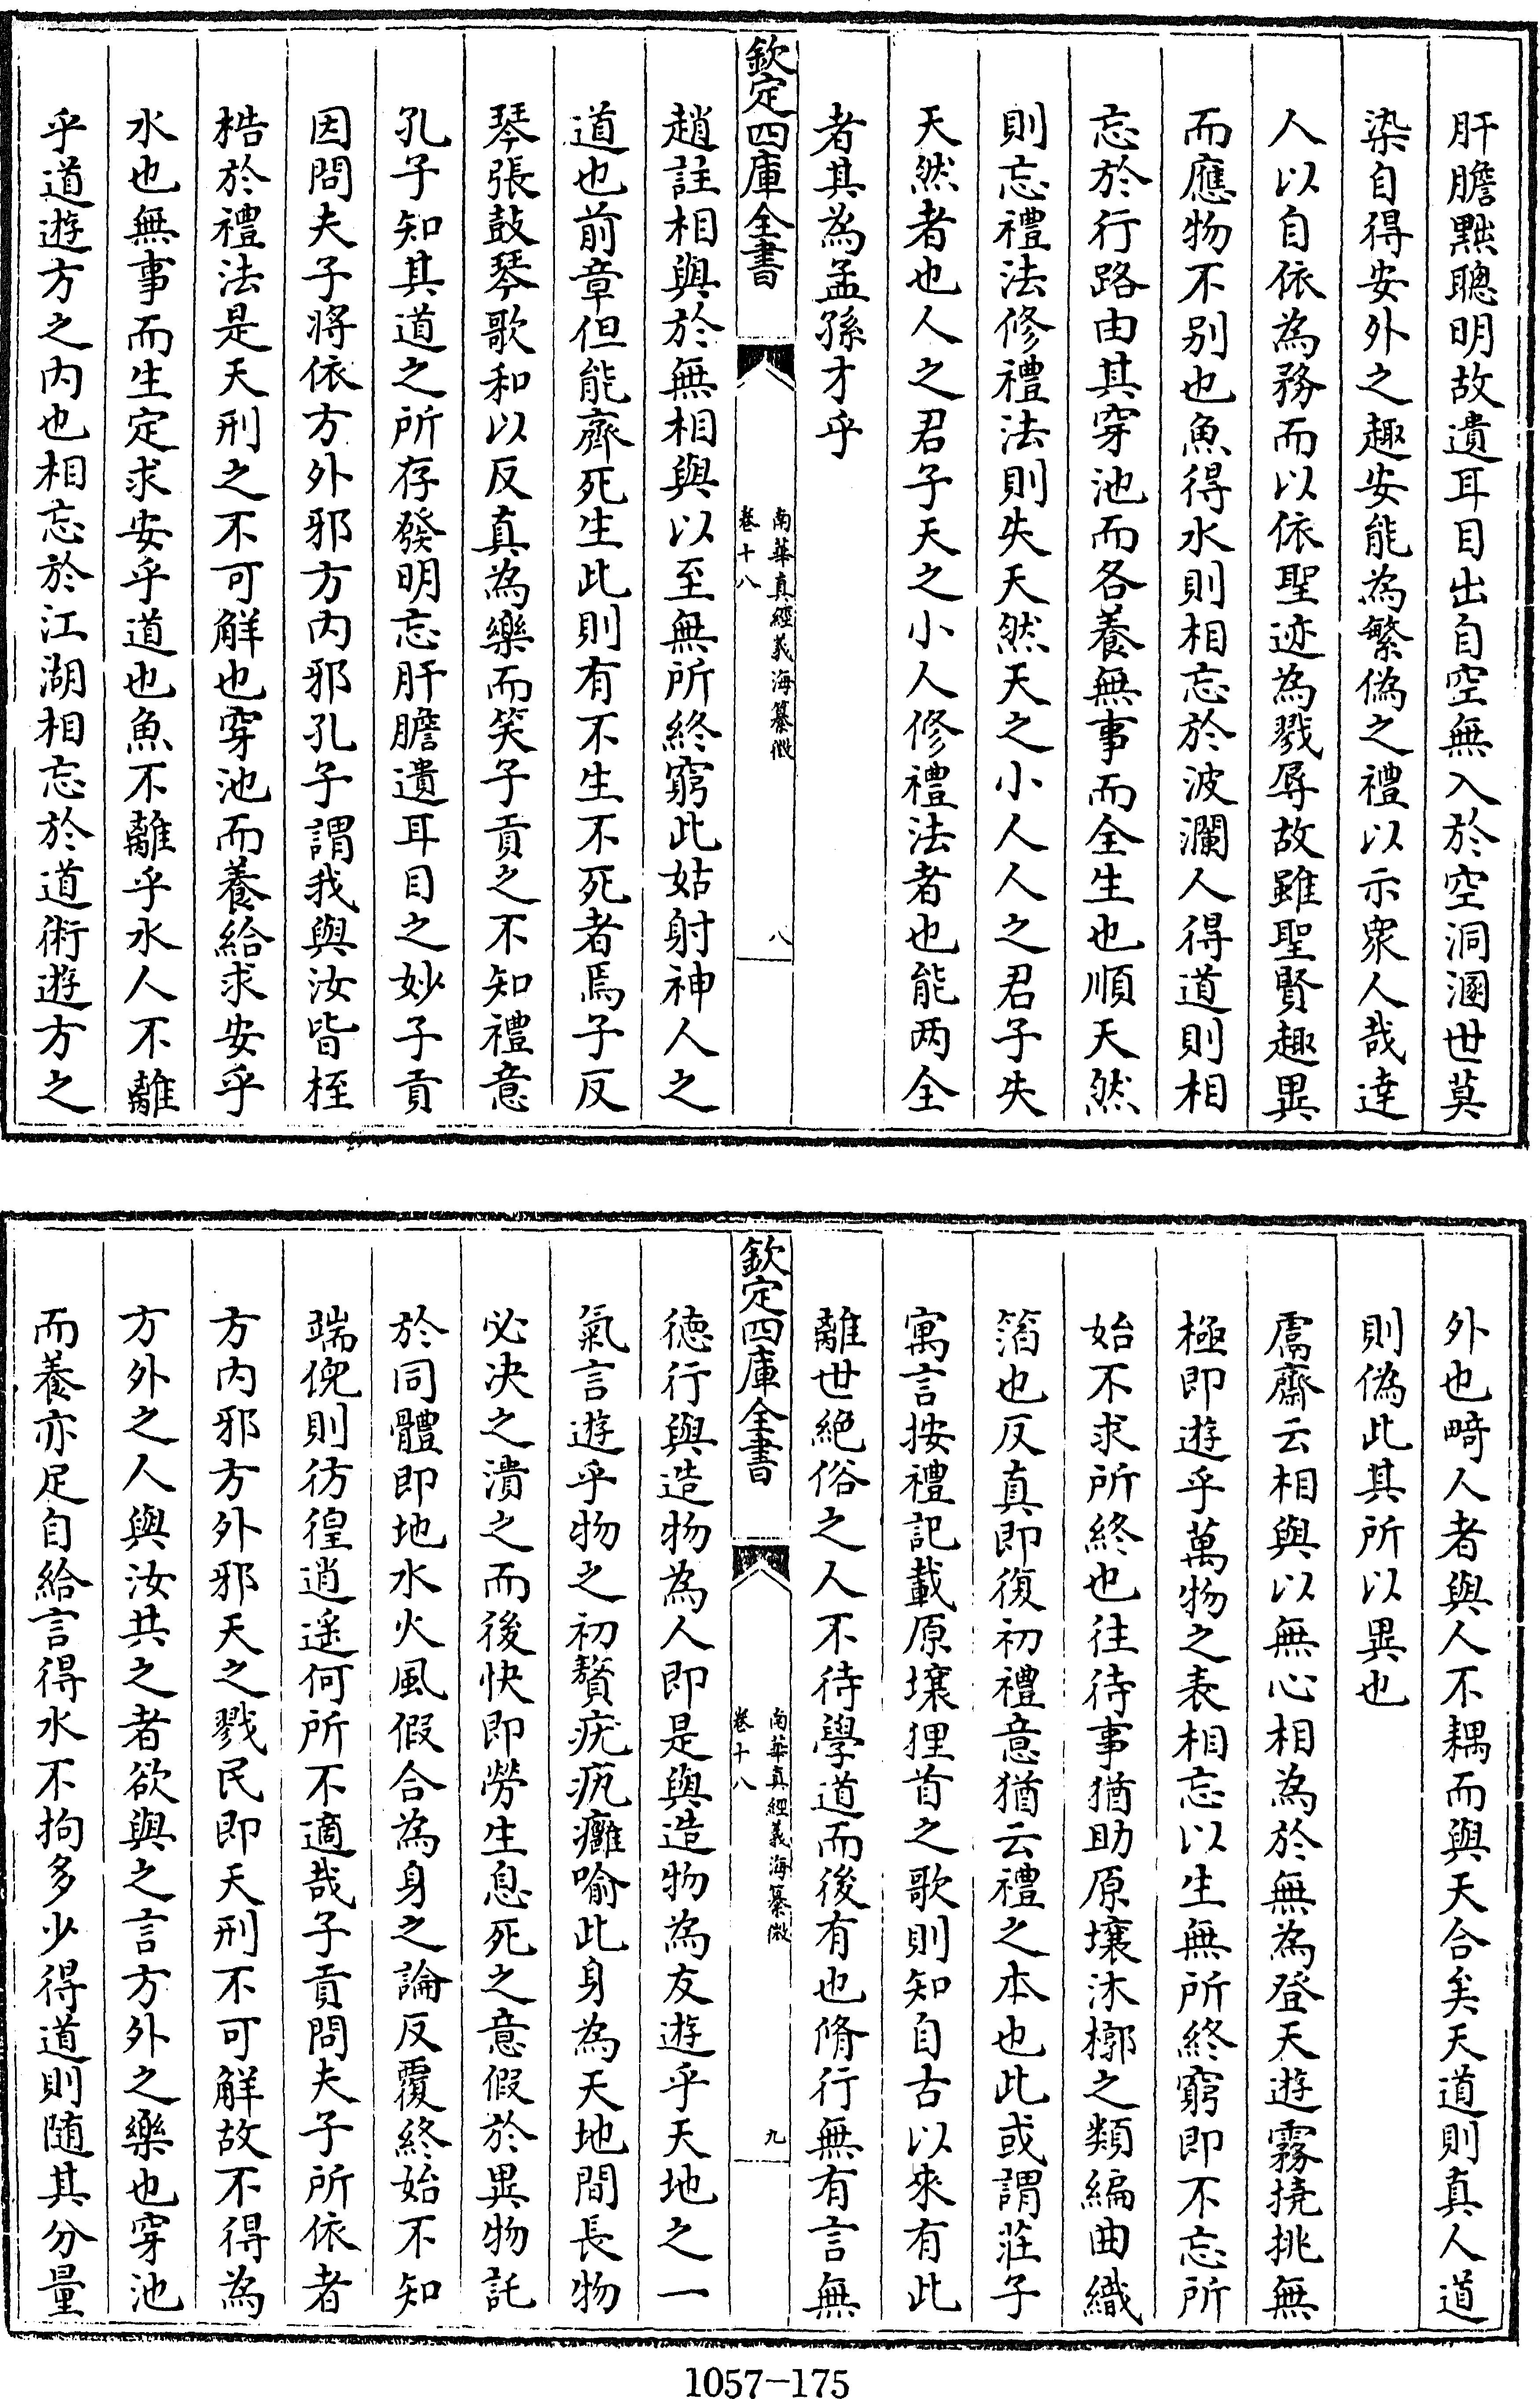 肝膽黜聰明故遺耳目出自空無入於空洞溷世莫
染自得安外之趣安能為繁偽之禮以示衆人哉達
人以自依為務而以依聖迹為戮辱故雖聖賢趣異
而應物不别也魚得水則相忘於波瀾人得道則相
忘於行路由其穿池而各養無事而全生也順天然
則忘禮法修禮法則失天然天之小人人之君子失
天然者也人之君子天之小人修禮法者也能两全
者其為孟孫才乎
欽定四庫全書
南華真經義海纂微
卷十八
八
趙註相與於無相與以至無所終窮此姑射神人之
道也前章但能齊死生此則有不生不死者焉子反
琴張鼓琴歌和以反真為樂而笑子貢之不知禮意
孔子知其道之所存發明忘肝膽遺耳目之妙子貢
因問夫子將依方外邪方内邪孔子謂我與汝皆桎
梏於禮法是天刑之不可解也穿池而養給求安乎
水也無事而生定求安乎道也魚不離乎水人不離
乎道遊方之内也相忘於江湖相忘於道術遊方之
外也畸人者與人不耦而與天合矣天道則真人道
則偽此其所以異也
鬳齋云相與以無心相為於無為登天遊霧撓挑無
極即遊乎萬物之表相忘以生無所終窮即不忘所
始不求所終也往待事猶助原壤沐槨之類編曲織
箔也反真即復初禮意猶云禮之本也此或謂莊子
寓言按禮記載原壤狸首之歌則知自古以來有此
離世絶俗之人不待學道而後有也脩行無有言無
欽定四庫全書
南華真經義海纂微
卷十八
九
徳行與造物為人即是與造物為友遊乎天地之一
氣言遊乎物之初贅疣㽽癰喻此身為天地間長物
必决之潰之而後快即勞生息死之意假於異物託
於同體即地水火風假合為身之論反覆終始不知
端倪則彷徨逍遥何所不適哉子貢問夫子所依者
方内邪方外邪天之戮民即天刑不可解故不得為
方外之人與汝共之者欲與之言方外之樂也穿池
而養亦足自給言得水不拘多少得道則随其分量
1057-175